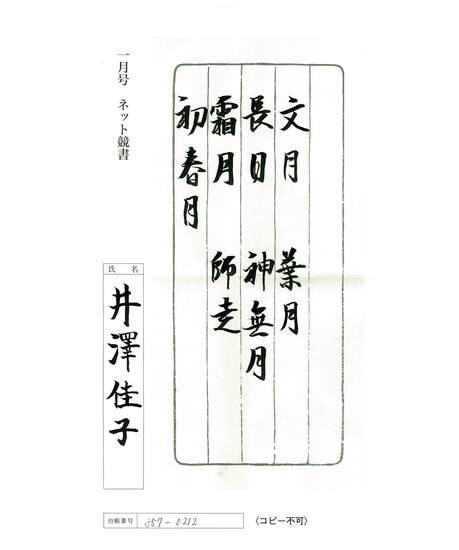 文月　葉月
長日　神無月
霜月　師走
初春月
一月号　ネット競書
氏名
井澤佳子
台帳番号 257-0212
〈コピー不可〉